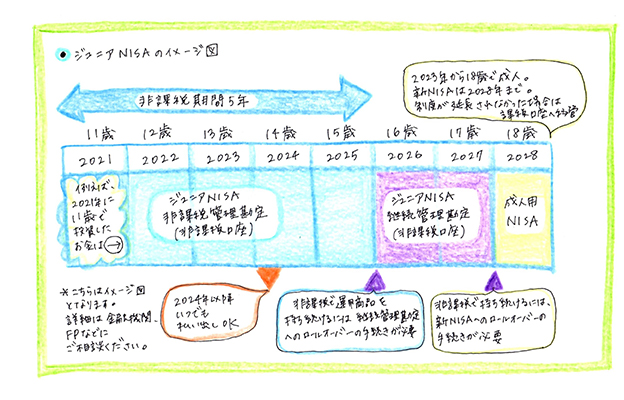 ジュニアNISAのイメージ図
2023年から18歳で成人。
新NISAは2028年まで。
制度が延長されなかった場合は
課税口座へ移管
非課税期間5年
11歳 12歳 13歳 14歳 15歳 16歳 17歳 18歳
2021 2022 2023 2024 2025 2026 2027 2028
例えば、
2021年に
11歳で
投資した
お金は→
ジュニアNISA
非課税管理勘定
(非課税口座)
ジュニアNISA
継続管理勘定
(非課税口座)
成人用
NISA
*こちらはイメージ図
となります。
詳細は金融機関、
FPなどに
ご相談ください。
2024年以降
いつでも
払い出しOK
非課税で運用商品を
持ち続けるには継続管理勘定
へのロールオーバーの手続きが必要
非課税で持ち続けるには、
新NISAへのロールオーバーの
手続きが必要